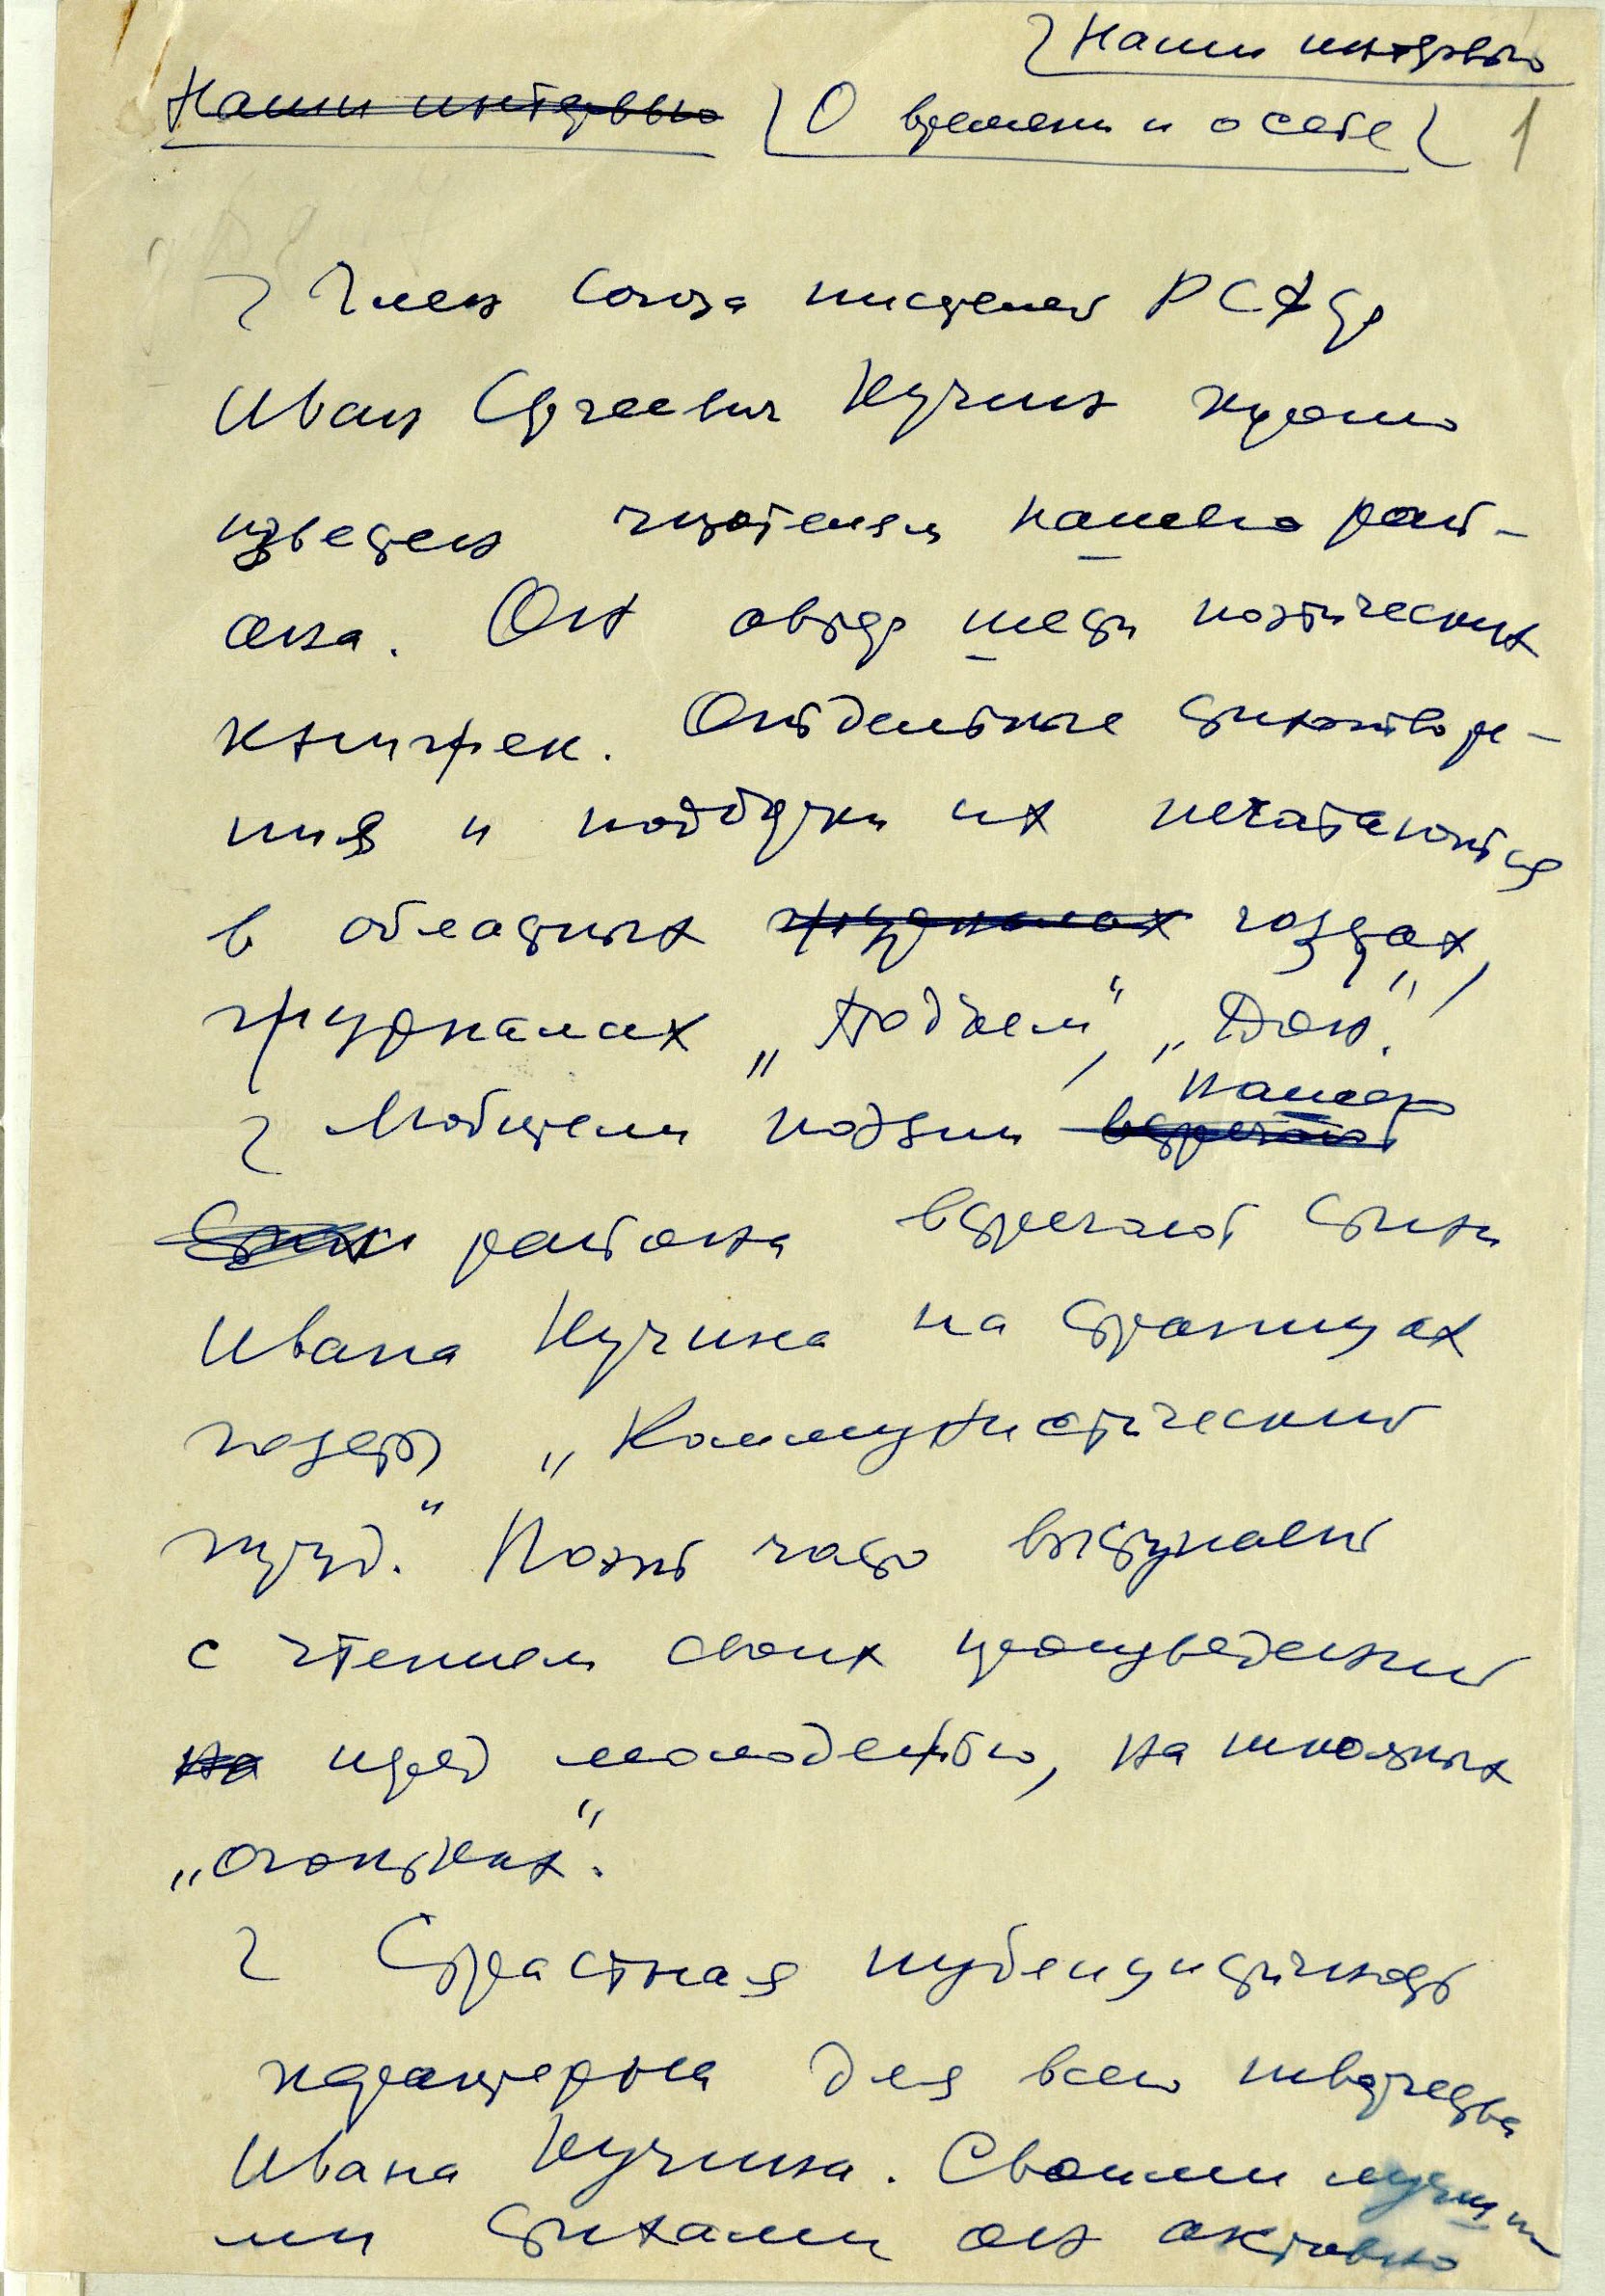 Наши интервью
Наши интервью О времени и о себе 1
Член Союза писателей РСФСР
Иван Сергеевич Кучин хорошо
известен читателям нашего рай-
она. Он автор шести поэтических
книжек. Отдельные стихотворе-
ния и подборки их печатаются
в областных журналах газетах,
журналах „Подъем", „Дон".
Любители поэзии встречают нашего
стихи района встречают стихи
Ивана Кучина на страницах
газеты „Коммунистический
труд." Поэт часто выступает
с чтением своих произведений
на перед молодежью, на школьных
„огоньках".
Страстная публицистичность
характерна для всего творчества
Ивана Кучина. Своими лучши-
ми стихами он активно